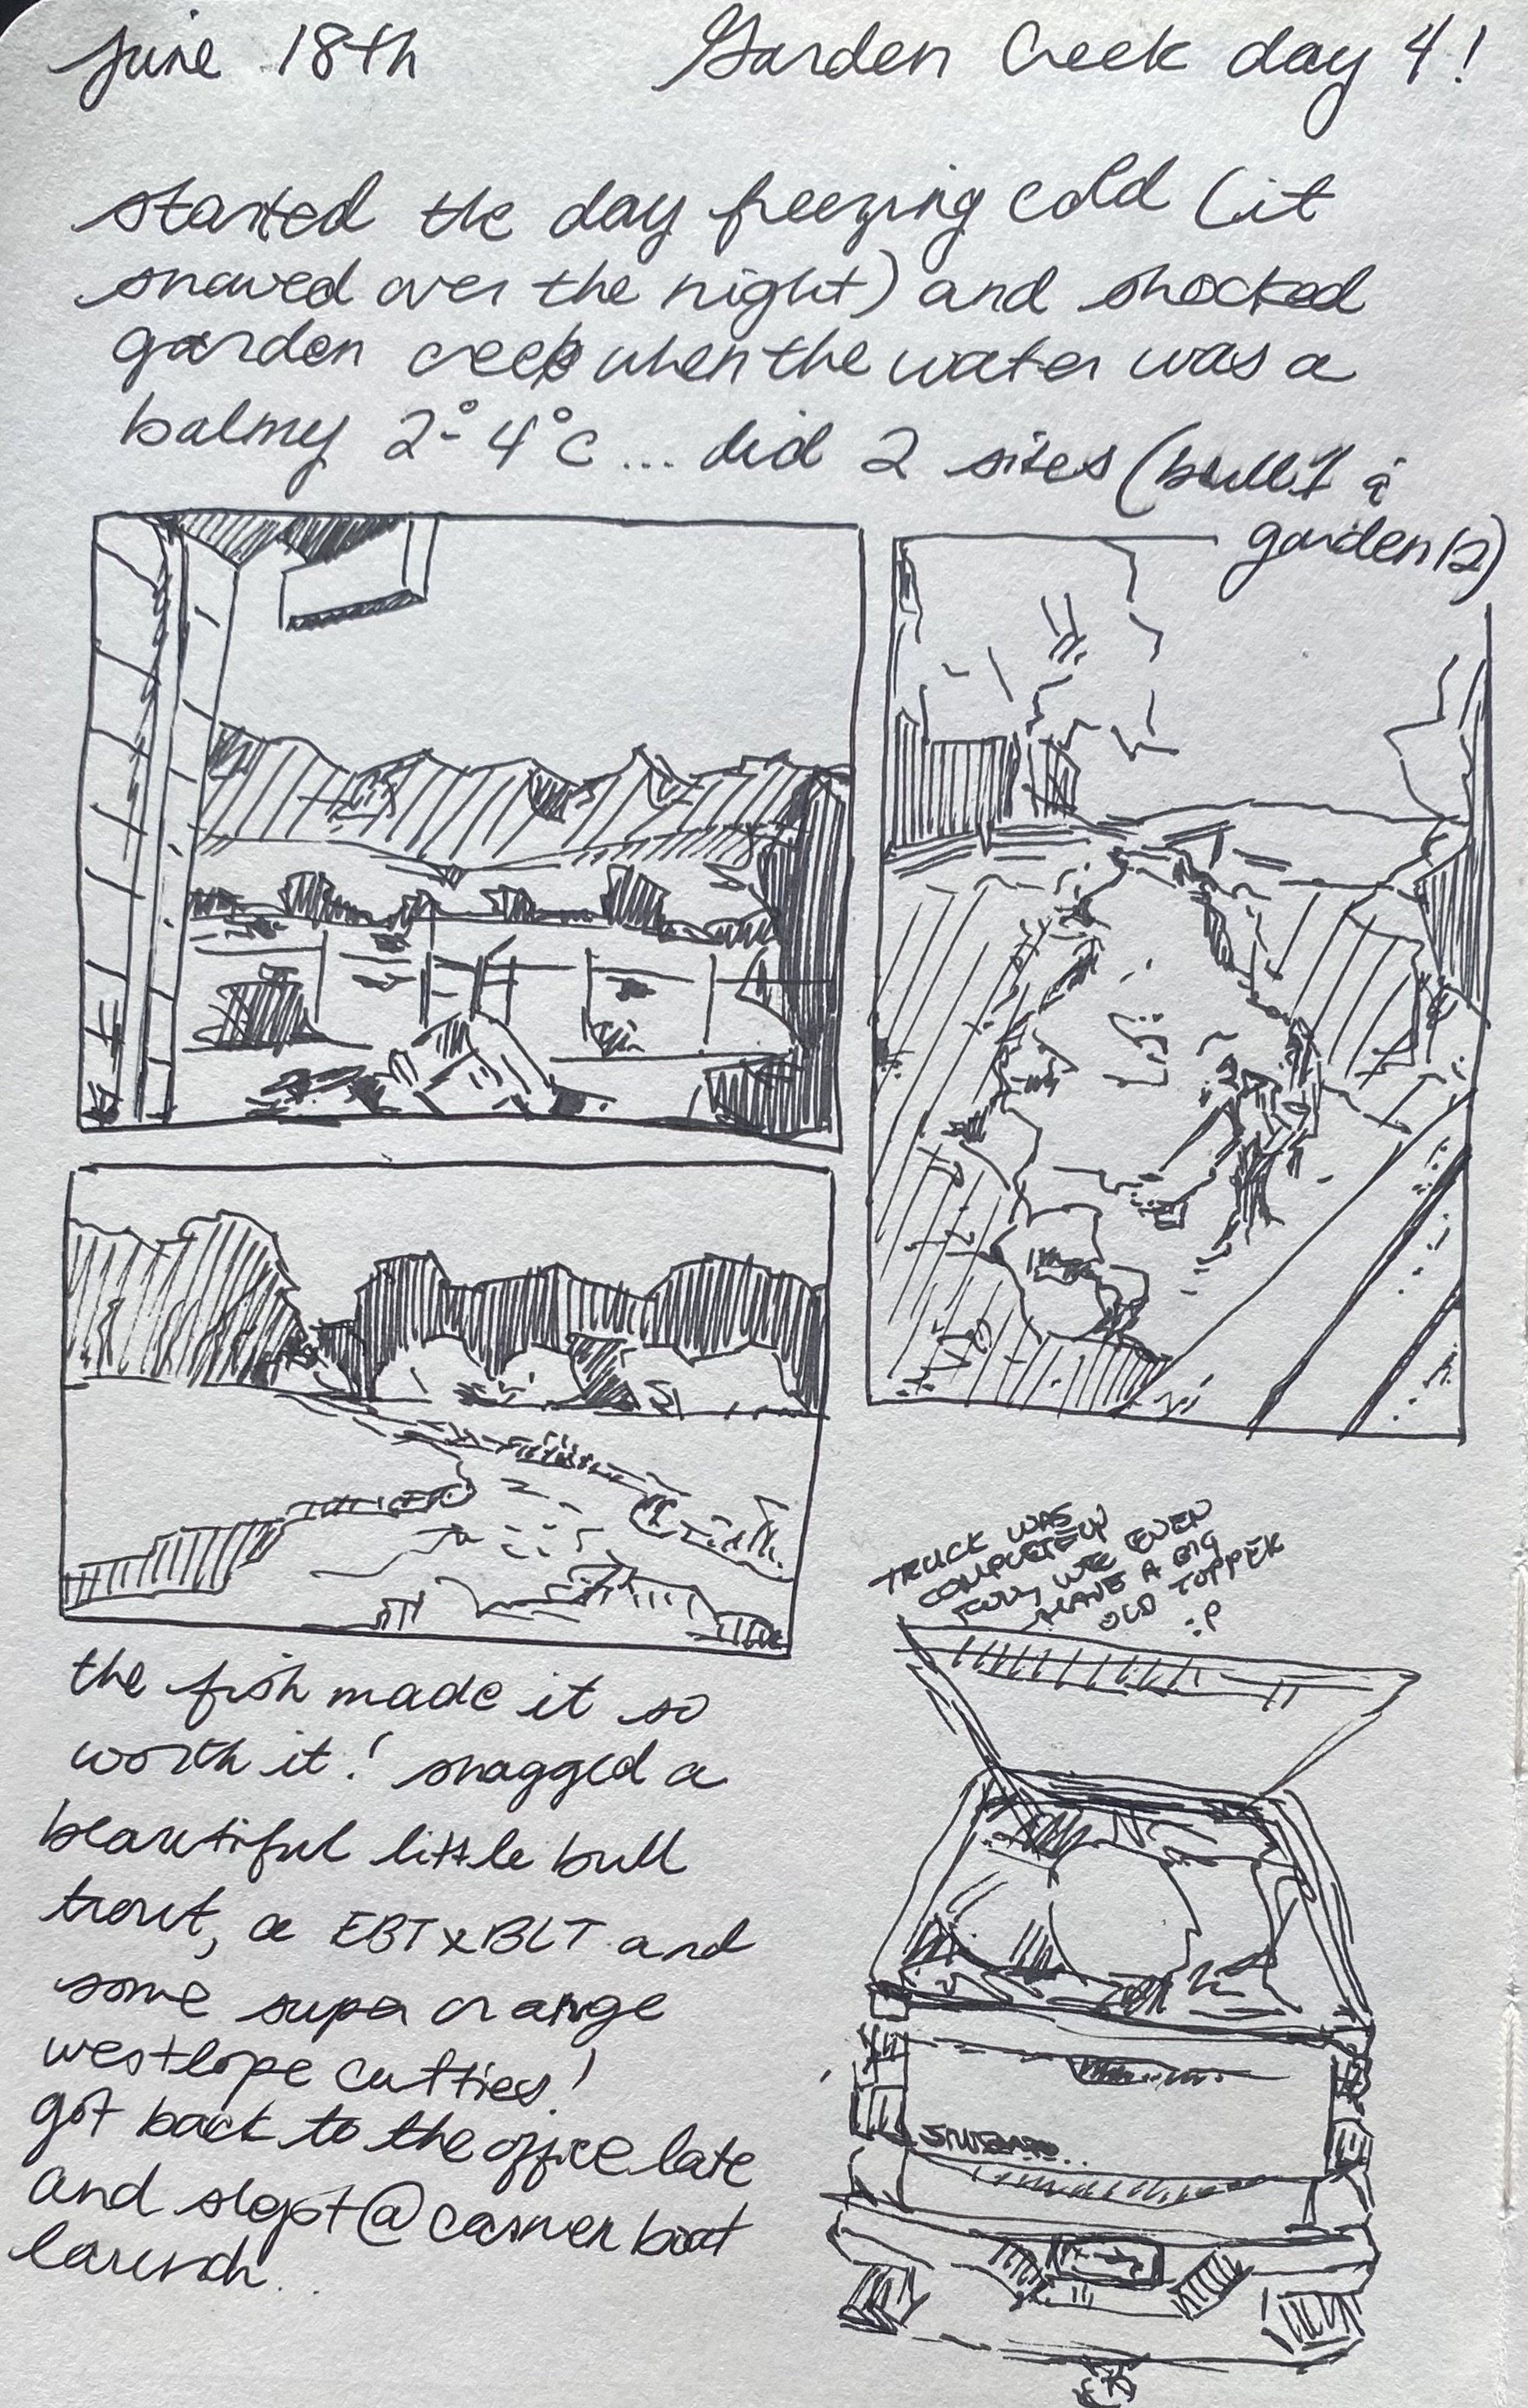 June 18th Garden Creek day 4!
started the day freezing cold (it
snowed over the night) and shocked
garden creek when the water was a
balmy 2°-4°C... did 2 sites (bull1 &
garden12)
TRUCK WAS
COMPLETELY
FULL, WE EVEN
HAVE A BIG
OLD TOPPER
:P
the fish made it so
worth it! snagged a
beautiful little bull
trout, a EBTxBLT and
some super orange
westlope cutties!
got back to the office late
and slept @ carmen boat
launch...